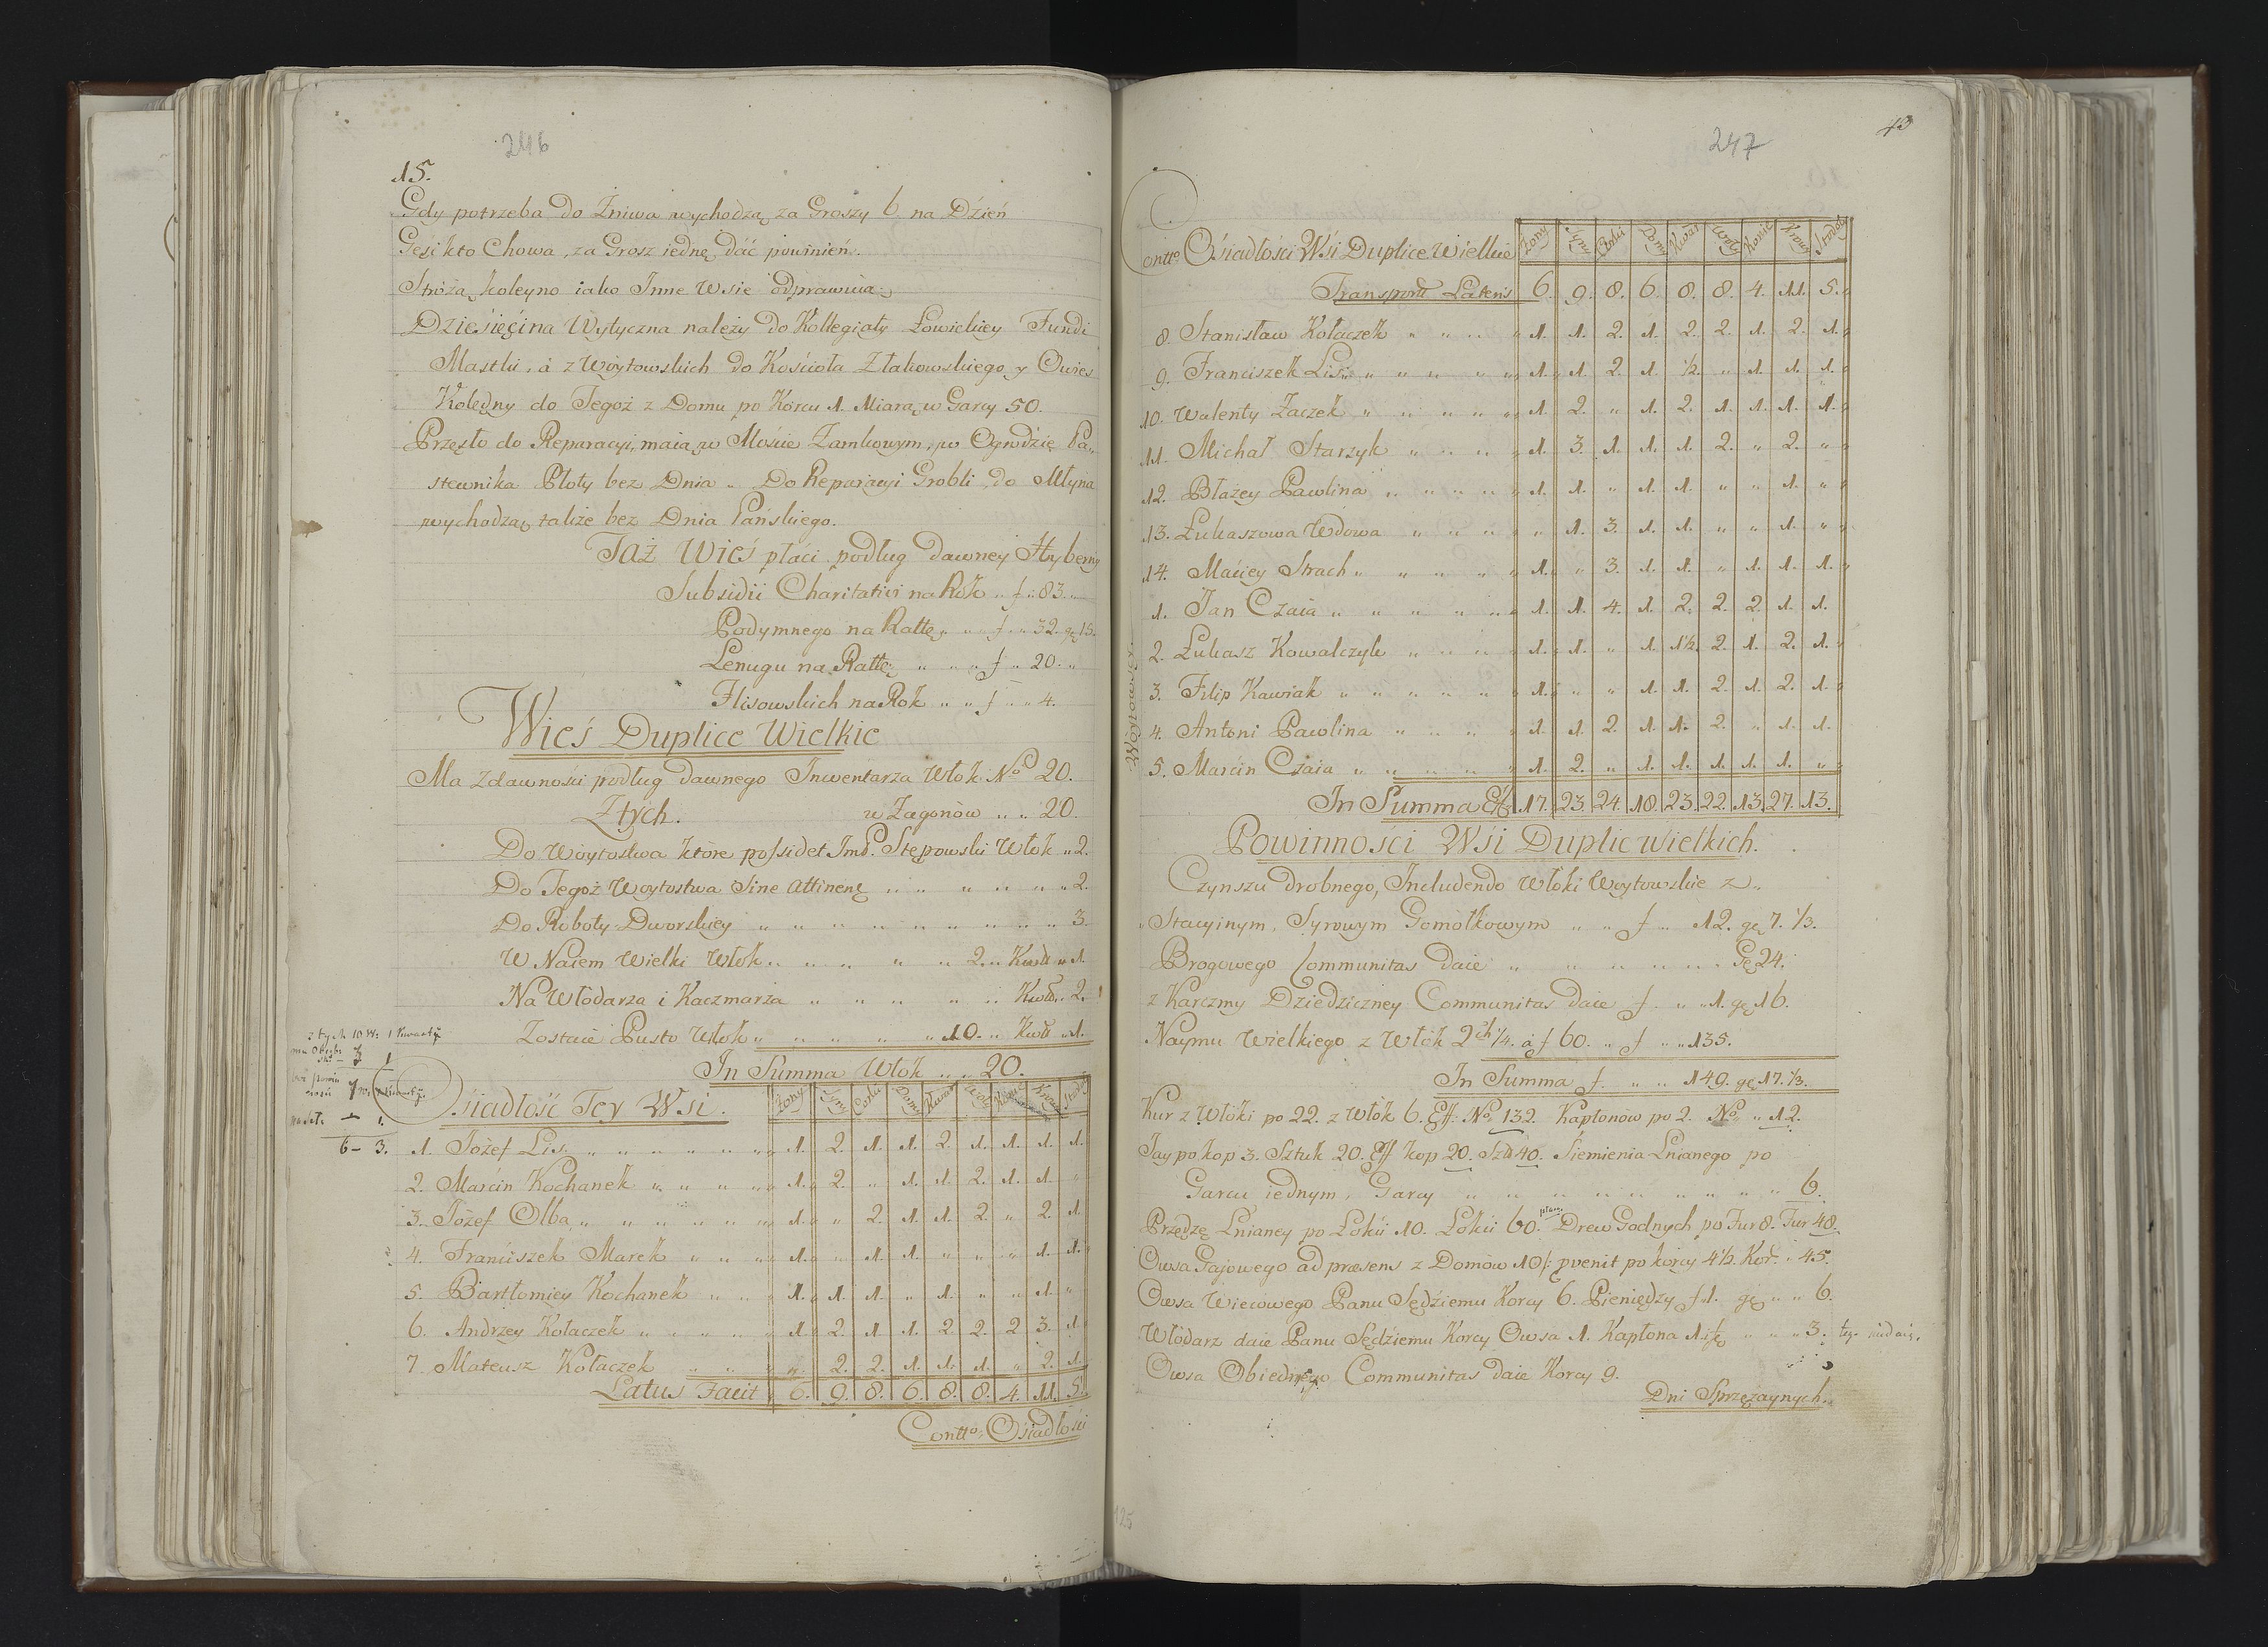 246
15.
Gdy potrzeba do Żniwa wychodzą za Groszy 6 na Dzień
Gęsi kto Chowa, za Grosz iednę dać powinien.
Stróżą koleyno iako Inne Wsie odprawuią
Dziesięcina Wytyczna należy do Kollegiaty Łowickiey Fundi
Mastki, á z Woytowskich do Kościoła Złakowskiego y Owies
Kolędny do Tegoż z Domu po Korcu 1. Miarą w Garcy 50.
Przęsło do Reparacyi maią w Moście Zamkowym, w Ogrodzie Pa„
stewnika Płoty bez Dnia „ Do Reparacyi Grobli do Młyna
wychodzą także bez Dnia Pańskiego.
Taż Wieś płaci podług dawney Hyberny
Subsidii Charitativi na Rok „ f „ 83 „
Podymnego na Rattę „ „ f „ 32. gę 15.
Lenugu na Rattę „ „ „ f „ 20. „
Flisowskich na Rok „ „ f „ „ 4.
Wieś Duplice Wielkie
Ma Zdawności podług dawnego Inwentarza Włók No 20.
Ztych. w Zagonów „ „ 20.
Do Woytostwa które possidet Imć P. Stępowski Włók „ 2.
Do Tegoż Woytostwa Sine Attinen „ „ „ „ „ „ 2.
Do Roboty Dworskiey „ „ „ „ „ „ „ „ „ 3.
W Naiem Wielki Włók „ „ „ „ „ 2. „ Kwtt „ 1.
Na Włodarza i Kaczmarza „ „ „ „ „ Kwtt „ 2.
z tych 10 W: 1 kwarty
Zostaie Pusto Włók „ „ „ „ „ 10. „ Kwtt „ 1.
In Summa Włók „ „ 20.
Osiadłość Tey Wsi. Żony Syny Corki Domy Kwart Woły Konie Krowy Stod:
6 - 3.
1. Józef Lis „ „ „ „ „ „ 1. 2. 1. 1. 2. 1. 1. 1. 1.
2. Marcin Kochanek „ „ „ „ 1. 2. „ 1. 1. 2. 1. 1. „
3. Józef Olba „ „ „ „ „ „ 1. „ 2. 1. 1. 2. „ 2. 1.
4. Franciszek Marek „ „ „ „ 1. „ 1. 1. „ „ „ 1. 1.
5. Bartłomiey Kochanek „ „ „ 1. 1. 1. „ 1. „ „ 1. „
6. Andrzey Kołaczek „ „ „ „ 1. 2. 1. 1. 2. 2. 2 3. 1.
7. Mateusz Kołaczek „ „ „ „ „ 2. 2. 1. 1. 1. „ 2. 1.
Latus Facit 6. 9. 8. 6. 8. 8. 4. 11. 5.
Contto. Osiadłości
247
43
Contto Osiadłości Wsi Duplice Wielkie Żony Syny Corki Domy Kwart Woły Konie Krowy Stodoły
Transport Lateris 6. 9. 8. 6. 8. 8. 4. 11. 5. „
8. Stanisław Kołaczek „ „ „ „ 1. 1. 2. 1. 2. 2. 1. 2. 1.
9. Franciszek Lis „ „ „ „ „ 1. 1. 2. 1. 1/2. „ 1. 1. 1.
10. Walenty Zaczek „ „ „ „ „ 1. 2. „ 1. 2. 1. 1. 1. 1.
11. Michał Starzyk „ „ „ „ 1. 3. 1. 1. 1. 2. „ 2. „
12. Błażey Pawlina „ „ „ „ „ 1. 1. „ 1. 1. „ „ 1. „
13. Łukaszowa Wdowa „ „ „ „ „ 1. 3. 1. 1. „ „ 1. „
14. Maciey Strach „ „ „ „ „ 1. „ 3. 1. 1. „ 1. 1. 1.
Woytowscy
1. Jan Czaia „ „ „ „ „ „ 1. 1. 4. 1. 2. 2. 2. 1. 1.
2. Łukasz Kowalczyk „ „ „ „ 1. 1. „ 1. 1 1/2. 2. 1. 2. 1.
3. Filip Kawiak „ „ „ „ „ 1. „ „ 1. 1. 2. 1. 2. 1.
4. Antoni Pawlina „ „ „ „ 1. 1. 2. 1. 1. 2. „ 1. 1.
5. Marcin Czaia „ „ „ „ „ 1. 2. „ 1. 1. 1. 1. 1. „
In Summa Eff 17. 23. 24. 18. 23. 22. 13. 27. 13.
Powinności Wsi Duplic wielkich.
Czynszu drobnego, Includendo Włóki Woytowskie z „
Stacyinym, Syrowym Gomółkowym „ „ f „ 12. gę 7. 1/3.
Brogowego Communitas daie „ „ „ „ „ „ Gę 24.
z Karczmy Dziedziczney Communitas daie f. „ „ 1. gę 16.
Naymu Wielkiego z Włók 2ch 1/4. á f 60. „ f „ „ 135.
In Summa f. „ „ 149. gę 17. 1/3.
Kur z Włóki po 22. z Włók 6. Eff. No 132. Kapłonów po 2. No „ 12.
Jay po kop 3. Sztuk 20. Eff kop 20. Sztt 40. Siemienia Lnianego po
Garcu iednym, Garcy „ „ „ „ „ „ „ „ „ 6.
Przędzę Lnianey po Łokci 10. Łokci 60. Drew Godnych po Fur 8. Fur 48.
Owsa Gajowego ad præsens z Domów 10/: pvenit po korcy 4 1/2. Kor: „ 45.
Owsa Wiecowego Panu Sędziemu Korcy 6. Pieniędzy f 1. gę „ „ 6.
Włodarz daie Panu Sędziemu Korcy Owsa 1. Kapłona 1. „ „ „ 3.
Owsa Obiednego Communitas daie Korcy 9.
Dni Sprzężaynych.
125